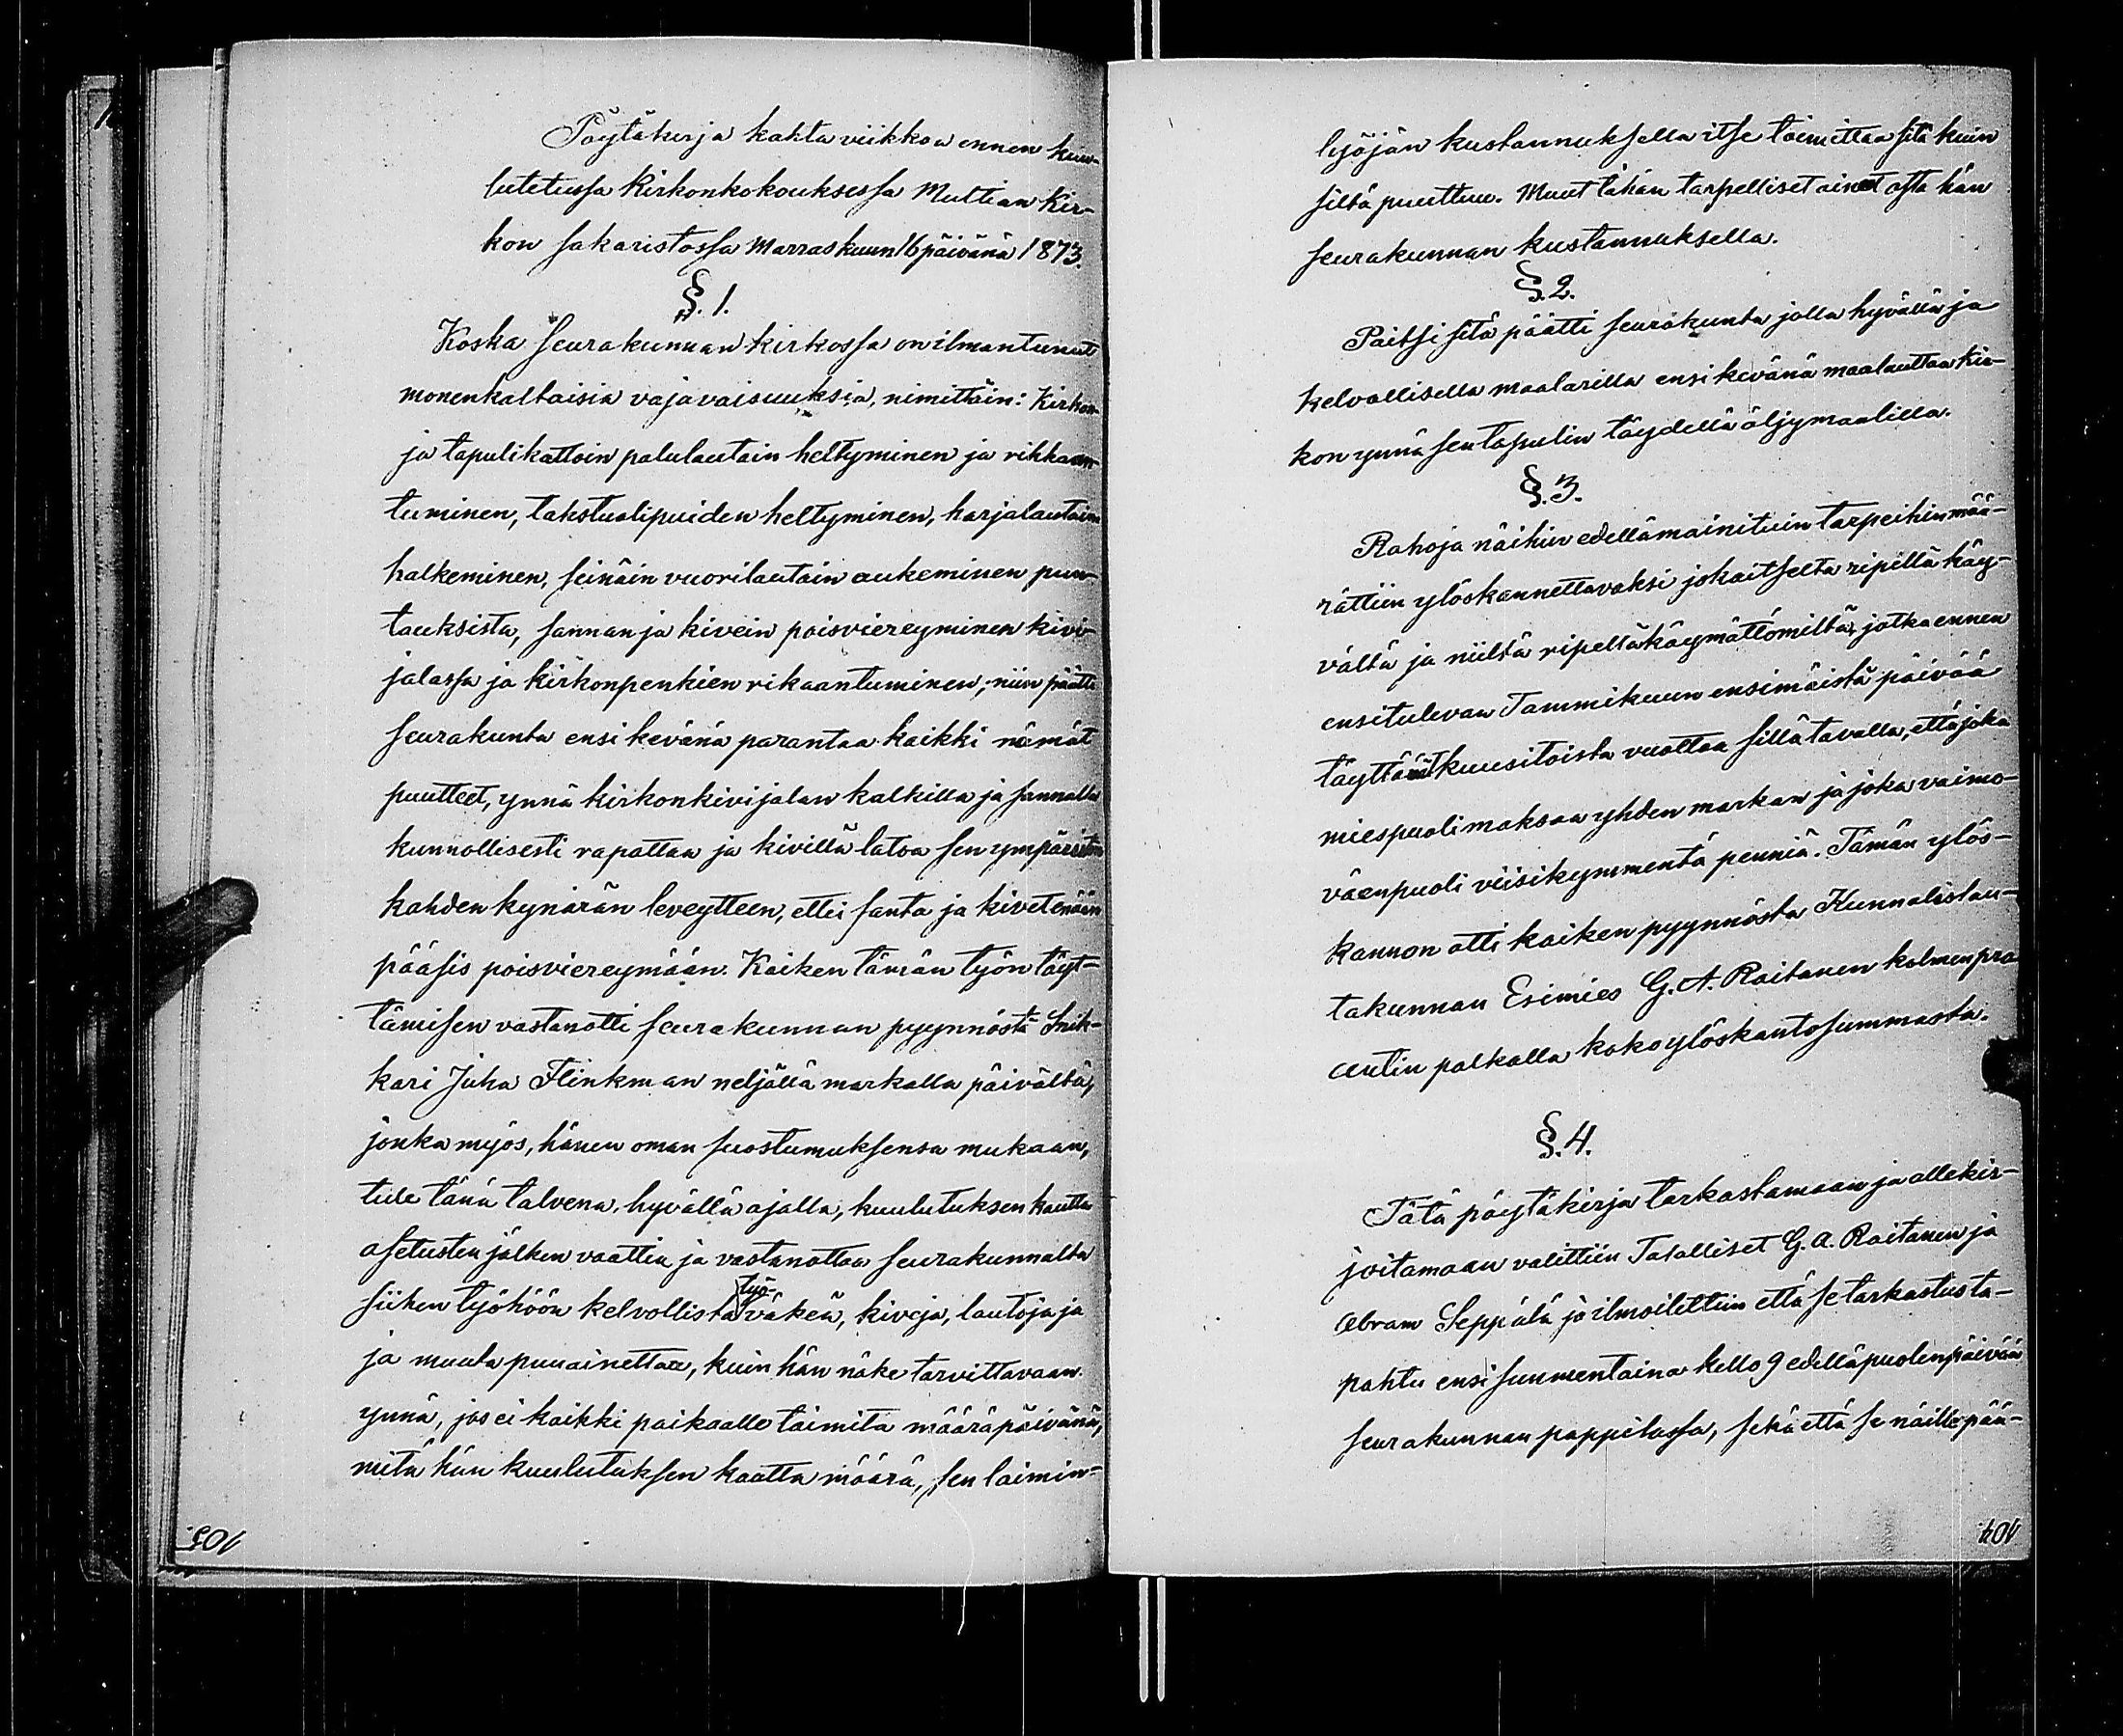 Pöytäkirja kahta viikkoa ennen kuu-
lutetussa Kirkonkokouksessa Muttian Kir-
kon sakaristossa Marraskuun 16 päivänä 1873.
§. 1.
Koska seurakunnan kirkossa on ilmantunut
monenkaltaisia vajavaisuuksia, nimittäin: Kirkon-
ja tapulikattoin palulautain heltyminen ja rikkaan-
tuminen, takstuolipuiden heltyminen, harjalautain
halkeminen, seinäin vuorilautain aukeminen puu-
tauksista, sannan ja kivein poisviereyminen kivi-
jalassa ja kirkonpenkien rikaantuminen; niin päätti
seurakunta ensi kevänä parantaa kaikki nämät
puutteet, ynnä kirkonkivijalan kalkilla ja sannalla
kunnollisesti rapattaa ja kivillä latoa sen ympäristön
kahden kynärän leveytteen, ettei santa ja kivet enään
pääsis poisviereymään. Kaiken tämän työn täyt-
tämisen vastanotti seurakunnan pyynnöstä Snik-
kari Juha Flinkman neljällä markalla päivältä,
jonka myös, hänen oman suostumuksensa mukaan,
tule tänä talvena, hyvällä ajalla, kuulutuksen kautta
asetusten jälken vaattia ja vastanottaa seurakunnalta
työ-
siihen työhöön kelvollista väkeä, kiveja, lautoja ja
ja muuta puuainettaa, kuin hän näke tarvittavaan
ynnä, jos ei kaikki paikaalle toimita määräpäivänä,
mitä hän kuulutuksen kautta määrä, sen laimin-
105.
lyöjän kustannuksella itse toimittaa sitä kuin
siltä puuttuu. Muut tähän tarpelliset aineet osta hän
seurakunnan kustannuksella.
§. 2.
Paitsi sitä päätti seurakunta jolla hyvällä ja
kelvollisella maalarilla ensi kevänä maalauttaa kir-
kon ynnä sen tapulin täydellä öljymaalilla.
§. 3.
Rahoja näihin edellämainituin tarpeihin mää-
rättiin ylöskannettavaksi jokaitselta ripillä käy-
vältä ja niiltä ripellä käymättömiltä, jotka ennen
ensitulevan Tammikuun ensimäistä päivää
täyttävät kuusitoista vuottaa sillä tavalla, että joka
miespuoli maksaa yhden markan ja joka vaimo-
väenpuoli viisikymmentä penniä. Tämän ylös-
kannon otti kaiken pyynnöstä Kunnalislau-
takunnan Esimies G. A. Raitanen kolmen pro-
centin palkalla koko ylöskantosummasta.
§. 4.
Tätä pöytäkirja tarkastamaan ja allekir-
joitamaan valittiin Talalliset G. A. Raitanen ja
Abram Seppälä ja ilmoitettiin että se tarkastus ta-
pahtu ensi sunnuntaina kello 9 edelläpuolenpäivää
seurakunnan pappilassa, sekä että se näille pää-
104